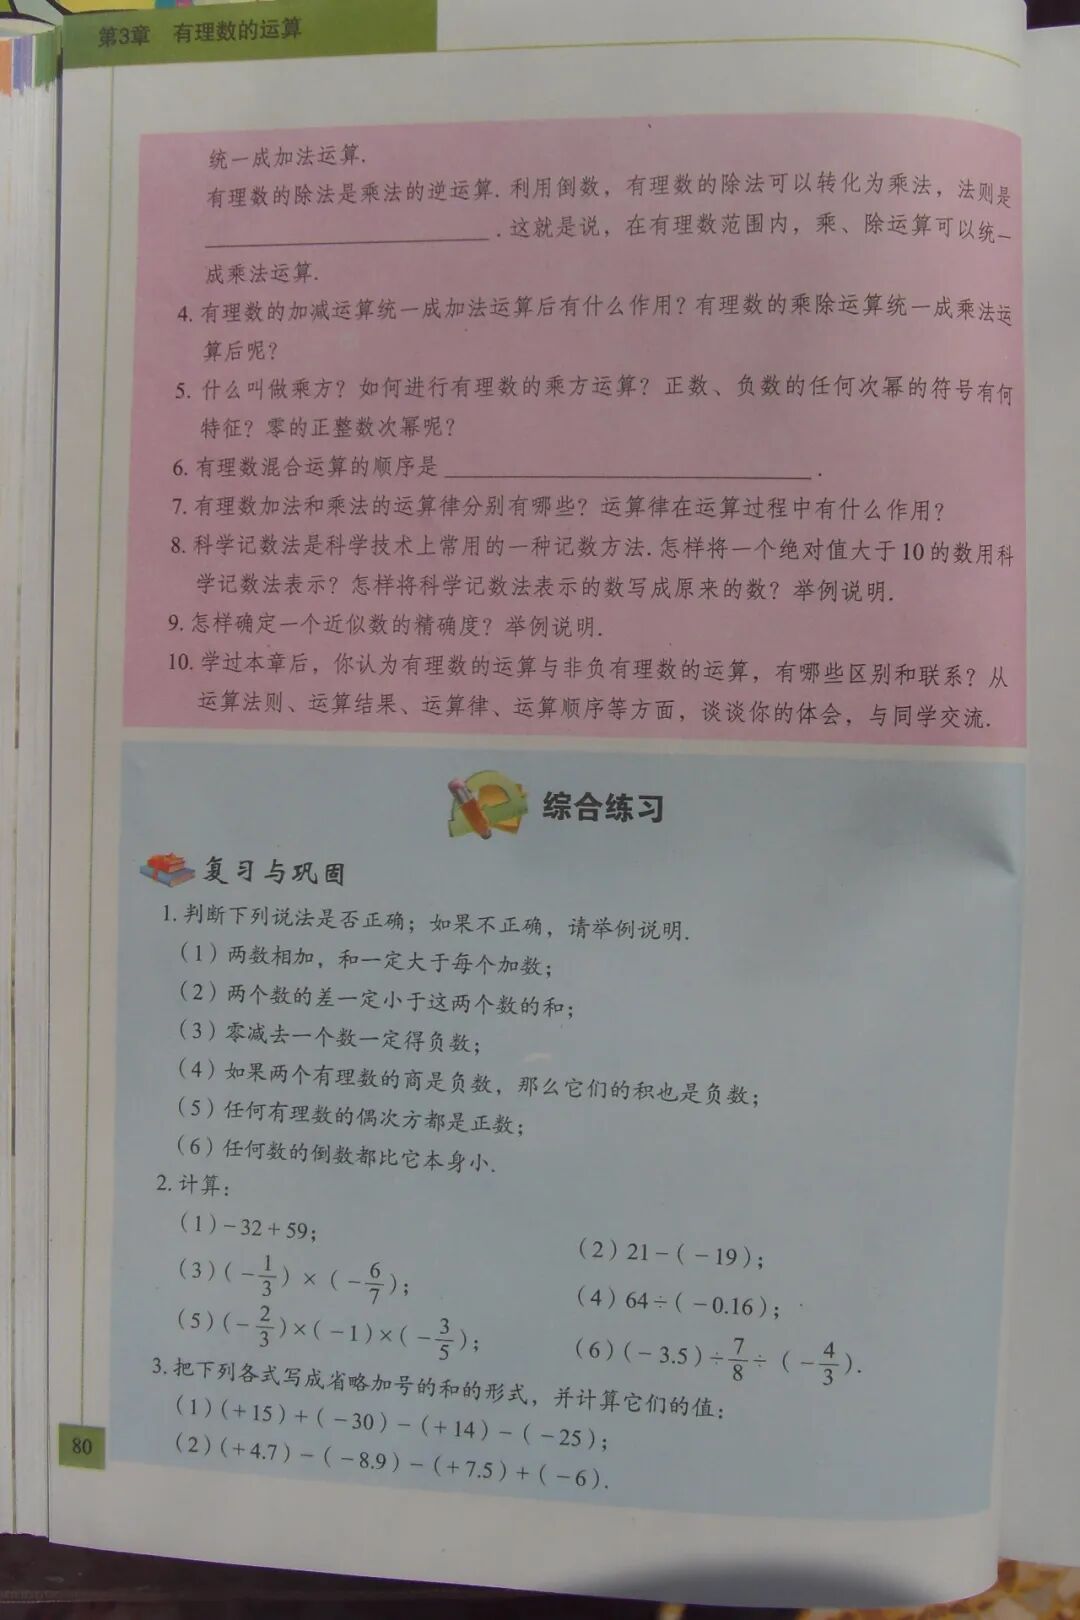 第3章 有理数的运算
统一成加法运算.
有理数的除法是乘法的逆运算. 利用倒数，有理数的除法可以转化为乘法，法则是
____________________. 这就是说，在有理数范围内，乘、除运算可以统一
成乘法运算.
4. 有理数的加减运算统一成加法运算后有什么作用？有理数的乘除运算统一成乘法运
算后呢？
5. 什么叫做乘方？如何进行有理数的乘方运算？正数、负数的任何次幂的符号有何
特征？零的正整数次幂呢？
6. 有理数混合运算的顺序是____________________.
7. 有理数加法和乘法的运算律分别有哪些？运算律在运算过程中有什么作用？
8. 科学记数法是科学技术上常用的一种记数方法. 怎样将一个绝对值大于10的数用科
学记数法表示？怎样将科学记数法表示的数写成原来的数？举例说明.
9. 怎样确定一个近似数的精确度？举例说明.
10. 学过本章后，你认为有理数的运算与非负有理数的运算，有哪些区别和联系？从
运算法则、运算结果、运算律、运算顺序等方面，谈谈你的体会，与同学交流.
综合练习
复习与巩固
1. 判断下列说法是否正确；如果不正确，请举例说明.
（1）两数相加，和一定大于每个加数；
（2）两个数的差一定小于这两个数的和；
（3）零减去一个数一定得负数；
（4）如果两个有理数的商是负数，那么它们的积也是负数；
（5）任何有理数的偶次方都是正数；
（6）任何数的倒数都比它本身小.
2. 计算：
（1）－32＋59；
（2）21－（－19）；
（3）（－1/3）×（－6/7）；
（4）64÷（－0.16）；
（5）（－2/3）×（－1）×（－3/5）；
（6）（－3.5）÷7/8÷（－4/3）.
3. 把下列各式写成省略加号的和的形式，并计算它们的值：
（1）（＋15）＋（－30）－（＋14）－（－25）；
（2）（＋4.7）－（－8.9）－（＋7.5）＋（－6）.
80